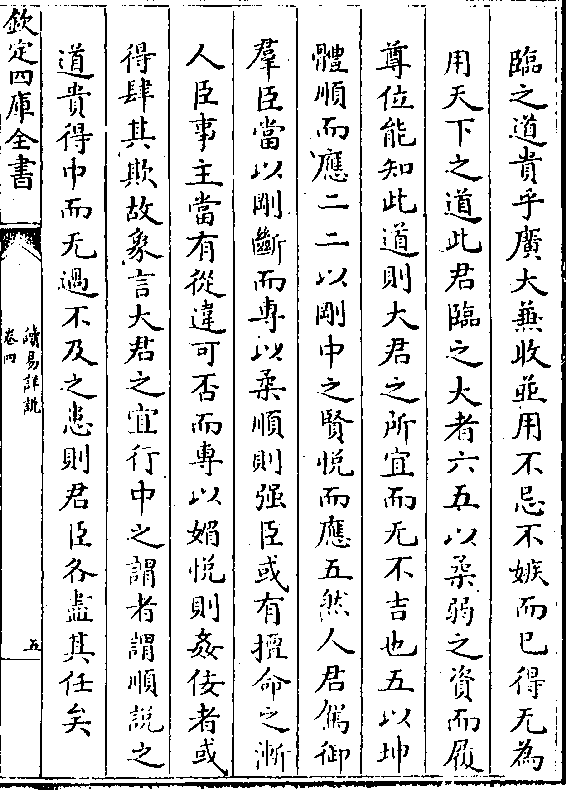 臨之道貴乎廣大兼收並用不忌不嫉而已得无為
用天下之道此君臨之大者六五以柔弱之資而履
尊位能知此道則大君之所宜而无不吉也五以坤
體順而應二二以剛中之賢悅而應五然人君駕御
羣臣當以剛斷而專以柔順則强臣或有擅命之漸
人臣事主當有從違可否而專以媚悅則姦佞者或
得肆其欺故象言大君之宜行中之謂者謂順說之
道貴得中而无過不及之患則君臣各盡其任矣
欽定四庫全書
讀易詳說
卷四
五